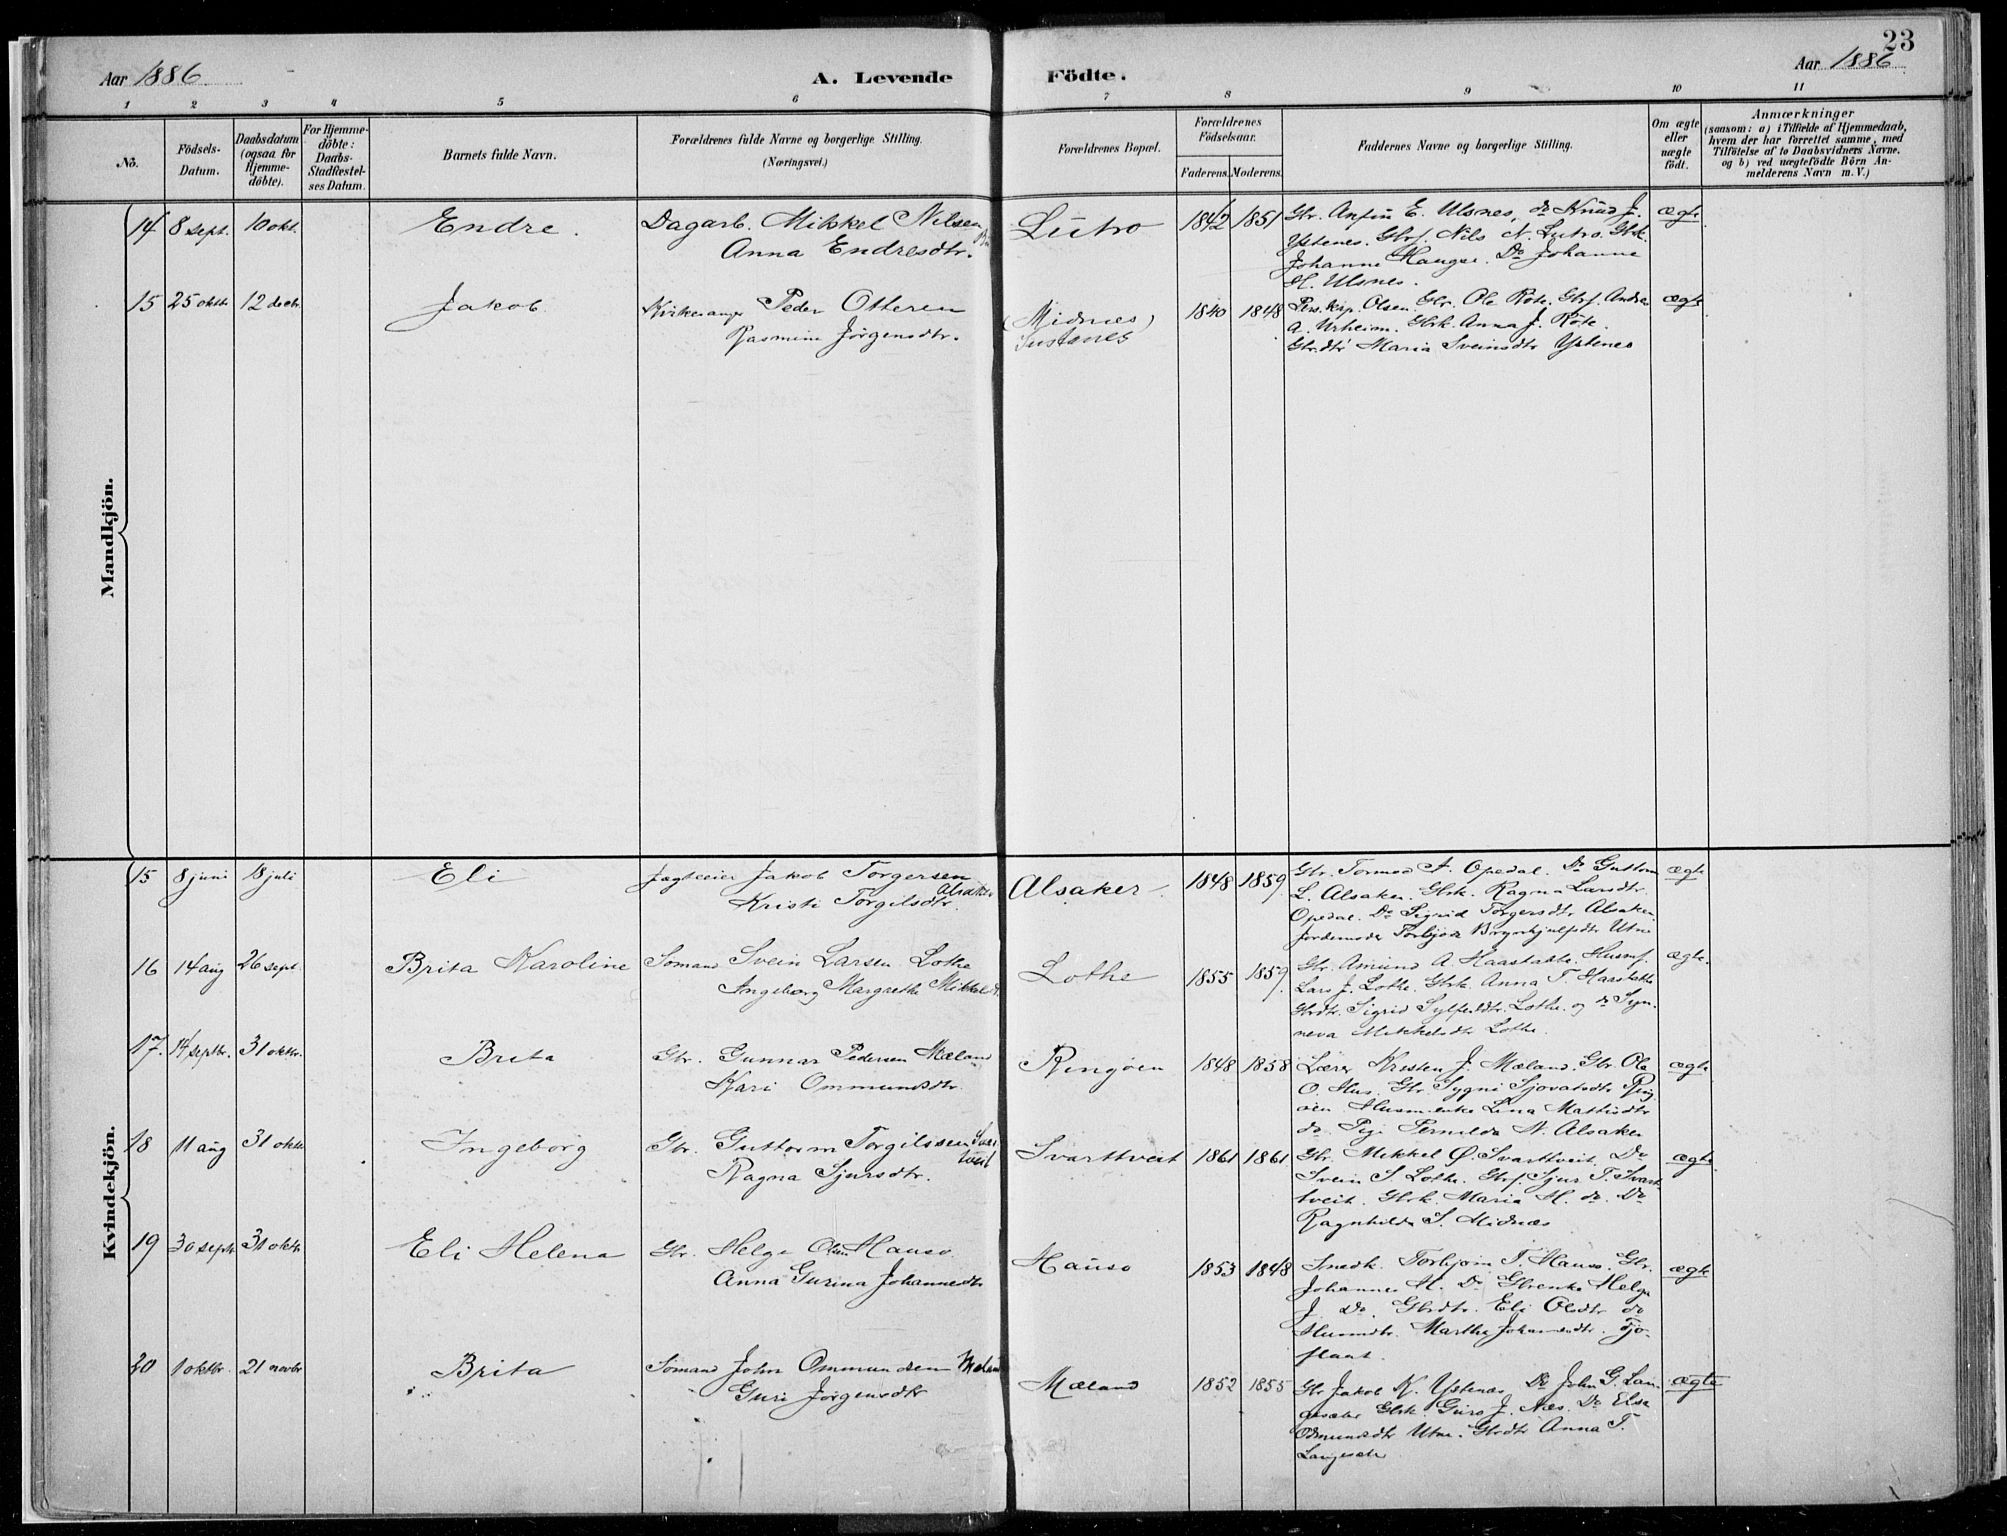 23
Aar 1886
A. Levende
Födte.
Aar 1886
1 2 3 4 5 6 7 8 9 10 11
No.
Födsels-
Datum.
Daabsdatum
(ogsaa for
Hjemme-
döbte).
For Hjemme-
döbte:
Daabs-
Stadfæstel-
ses Datum.
Barnets fulde Navn.
Forældrenes fulde Navne og borgerlige Stilling.
(Næringsvei.)
Forældrenes Bopæl.
Forældrenes
Födselsaar.
Faderens. Moderens.
Faddernes Navne og borgerlige Stilling.
Om ægte
eller
uægte
födt.
Anmærkninger
(saasom: a) i Tilfælde af Hjemmedaab,
hvem der har forrettet samme, med
Tilföielse af to Daabsvidners Navne,
og b) ved uægtefödte Börn An-
melderens Navn m. V.)
Mandkjön.
14 8 sept. 10 okt. Endre. Dagarb. Mikkel Nilsen
Anna Endresdtr.
Lutro 1842 1851 Gbr. Anfin E. Ulsnes, do Knud J.
Ystenes. Gbrf. Nils N. Lutro. Gbrk.
Johanne Haugse. Do Johanne
H. Ulsnes.
ægte
15 25 oktbr 12 decbr. Jakob Kirkesanger Peder Otteren
Rasmine Jörgensdtr.
(Midnæs)
1840 1848 Pers. Kap. Olsen. Gbr. Ole Röte. Gbrf. Andreas
A. Urheim. Gbrk. Anna J. Röte.
Gbrdtr Maria Sveinsdtr Ystenes
ægte
Kvindekjön.
15 8 juni 18 juli Eli Jagteeier Jakob Torgersen
Alsaker
Kristi Torgilsdtr.
Alsaker 1848 1859 Gbr. Tormod A. Opedal. Do Guttorm
L. Alsaker. Gbrk. Ragna Larsdtr.
Opedal. Do Sigrid Torgersdtr Alsaker.
Jordemoder Torbjör Brynhjulfsdtr Utne
ægte
16 14 aug 26 sept. Brita Karoline Sömand Svein Larsen Lothe
Ingeborg Margrethe Mikkelsdt.
Lothe 1855 1859 Gbr. Amund A Haastabbe. Husmf.
Lars J. Lothe. Gbrk. Anna T. Haastabbe
Gbrdtr. Sigrid Sylfestdtr. Lothe og do Syn-
neva Mikkelsdtr Lothe.
ægte.
17. 14 septbr. 31 oktbr. Brita Gbr. Gunnar Pedersen Mæland
Kari Ommundsdtr.
Ringöen 1848 1858 Lærer Kristen J. Mæland. Gbr. Ole
O. Hus. Gbr. Sygni Sjovatsdtr Ring-
öen. Husm.enke Lina Mathisdtr
do. Pige Pernilda N. Alsaker
ægte
18 11 aug 31 oktbr Ingeborg Gbr. Guttorm Torgilssen Svar-
tveit
Ragna Sjursdtr.
Svarttveit 1861 1861 Gbr. Mikkel Ö. Svarttveit. Do
Svein S. Lothe. Gbrf. Sjur T. Svart-
tveit. Gbrk. Maria H. do. Do
Ragnhilda S. Midnæs
ægte
19 30 septbr 31 oktbr Eli Helena Gbr. Helge Olsen Hauso
Anna Gurina Johannesdtr
Hauso 1853 1848 Snedk. Torbjörn T. Hauso. Gbr.
Johannes H. Do Gbrenke Helga
J. Do. Gbrdtr. Eli Olsdtr do
Husmdtr. Martha Johannesdtr. Tjo-
flaat.
ægte
20 1 oktbr. 21 novbr Brita Sömand John Ommundsen Mæland
Guri Jörgensdtr
Mæland 1852 1855 Gbr Jakob K. Ystenæs Do John G. Lan-
gesæter Gbrk. Guro J. Næs. Do Elsa
Odmundsdtr Utne. Gbrdtr Anna T.
Langesæter
ægte